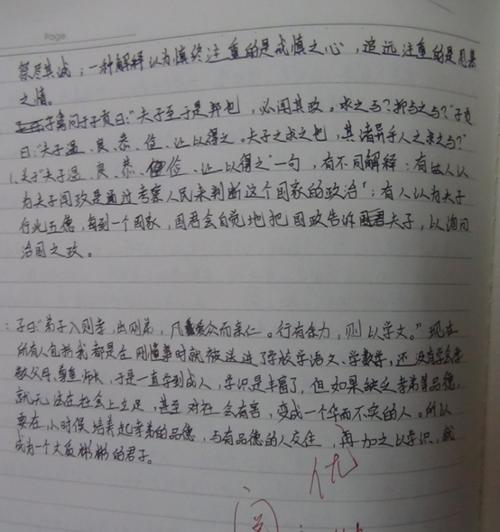 Page
祭尽其诚；一种解释认为慎终注重的是戒慎之心，追远注重的是思慕
之情。
子禽问于子贡曰："夫子至于是邦也，必闻其政，求之与？抑与之与？"子贡
曰："夫子温、良、恭、俭、让以得之，夫子之求之也，其诸异乎人之求之与？"
1.关于"夫子温、良、恭、俭、让以得之"一句，有不同解释：有些人认
为夫子闻政是通过考察人民来判断这个国家的政治；有人认为夫子
行此五德，每到一个国家，国君会自觉地把国政告诉夫子，以询问
治国之政。
：子曰"弟子入则孝，出则弟，凡爱众而亲仁。行有余力，则以学文。"现在
所有人包括我都是在刚懂事时就被送进了学校学语文、学数学，还没有学会孝
敬父母、尊重师长，于是一直学到成人，学识是丰富了，但如果缺乏孝弟等品德，
就无法在社会上立足，甚至对社会有害，变成一个华而不实的人。所以
要在小时候培养起孝弟的品德，与有品德的人交往，再加之以学识，就
成为一个文质彬彬的君子。
优
阅